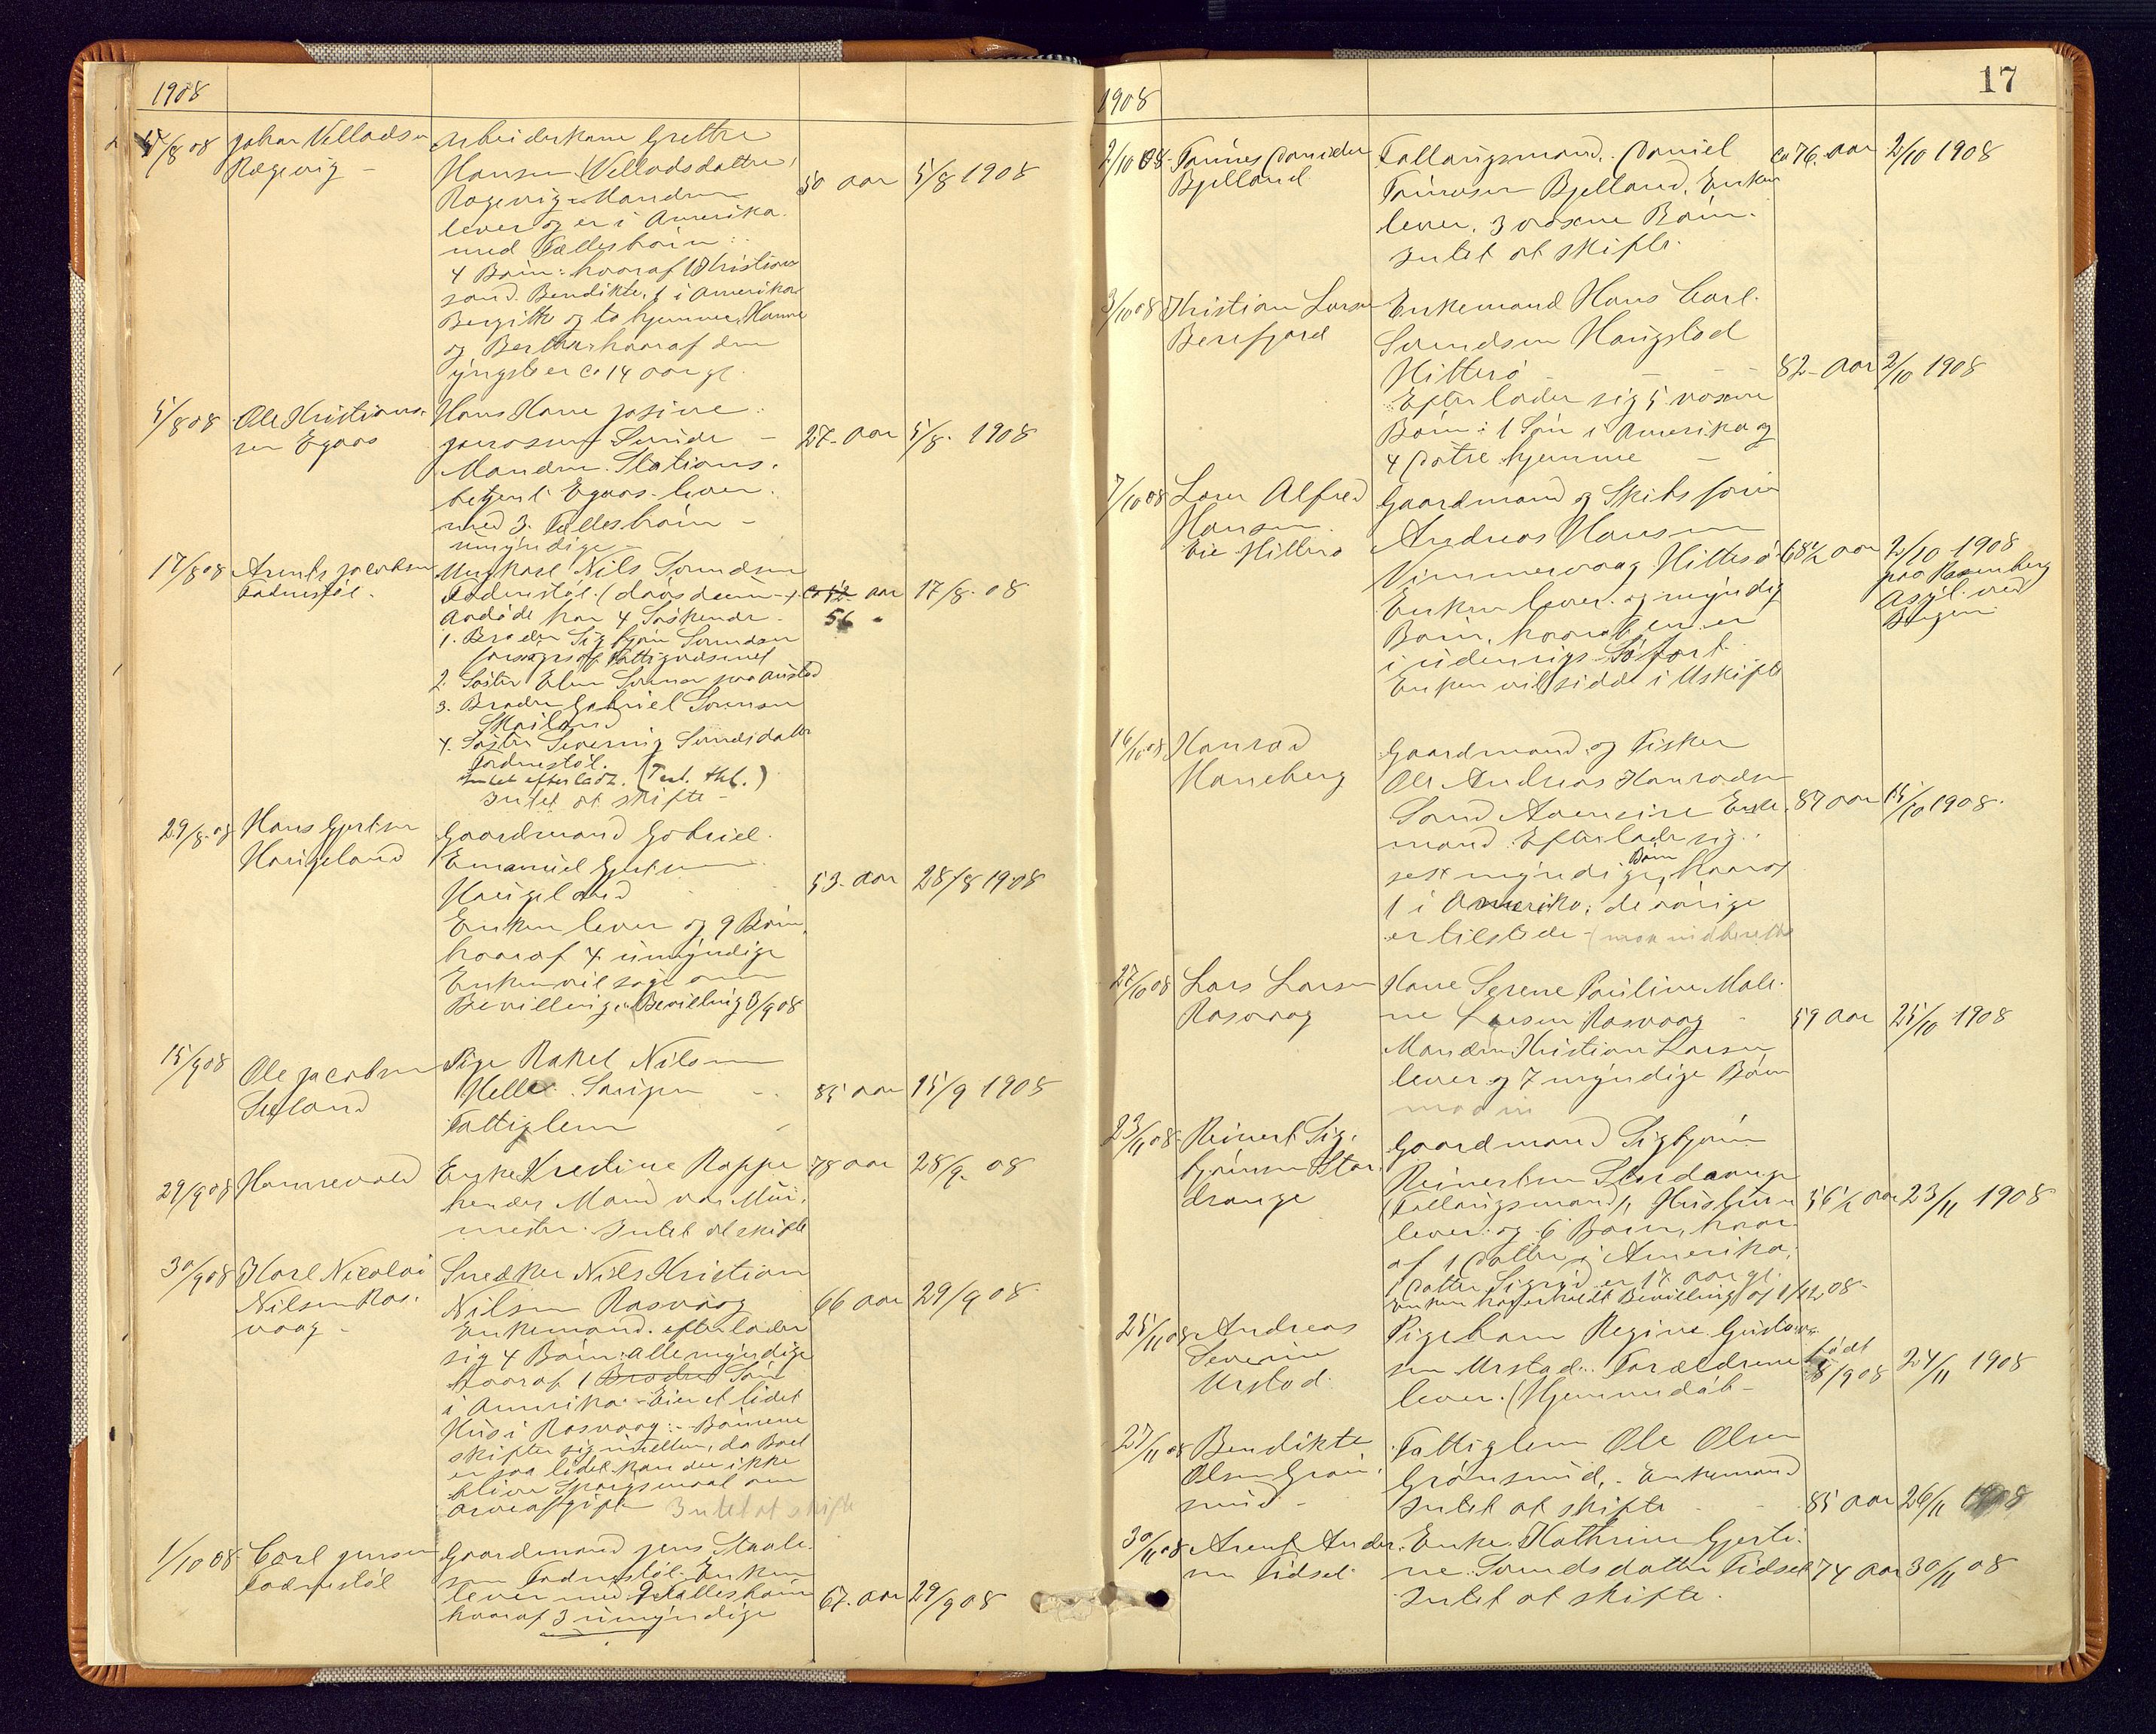 1908
5/8 08 Johan Velladsen Arbeiderkone Grethe
Rægevig - Hansen (Velladsdatter)
Rægevig - Manden 50 aar 5/8 1908
lever og er i Amerika.
med Fællesbørn:
4 Børn: hvoraf 1 Kristian
sand. Bendikte, 1 i Amerika
Bergitte og to hjemme, Hanne
og Bertha hvoraf den
yngste er ca 14 aar gl.
5/8 08 Ole Kristian- Hans Kone Josine
sen Egaas Jonassen Sunde - 27 aar 5/8 1908
Manden Stations-
betjent Egaas lever
med 3 Fællesbørn -
umyndige -
17/8 08 Arent Jacobsen Ungkarl Nils Svendsen
Fodnestøl. Fodnestøl (døvs deum-) ca 52 aar 17/8 08
Avdøde har 4 Søskende - 56 "
1. Broder Sigbjørn Svendsen
forsørges af Fattigvæsenet
2. Søster Elen Svensen paa Austad
3. Broder Gabriel Svensen
Skailand
4. Søster Severine Svendsdatter
Fodnestøl.
Intet efterladt. (Test. tbl.)
Intet at skifte -
29/8 08 Hans Gjertsen Gaardmand Gabriel
Haugeland Emanuel Gjertsen
Haugeland 53 aar 28/8 1908
Enken lever og 9 Børn,
hvoraf 4 umyndige
Enken vil søge om
Bevilling. Bevilling 3/9 08
15/9 08 Ole Jacobsen Pige Rakel Nilsen
Seland Helle. 85 aar 15/9 1908
Fattiglem
29/9 08 Hannevold Enke Kristine Rappe 78 aar 28/9 08
hendes Mand var Mur-
mester. Intet at skifte
30/9 08 Karl Nicolai Snedker Nils Kristian
Nilsen Ras- Nilsen Rasvaag 66 aar 29/9 08
vaag - Enkemand. efterlader
sig 4 Børn: Alle myndige
hvoraf 1 Broder Søn
i Amerika - Eier et lidet
Hus i Rasvaag: - Børnene
skifter sig imellem, da Boet
er saa lidet kan der ikke
blive Spørgsmaal om
Arveafgift Intet at skifte
1/10 08 Carl Jensen Gaardmand Jens Staale-
Fodnestøl sen Fodnestøl. Enken
lever med 9 Fællesbørn 67 aar 29/9 08
hvoraf 3 umyndige
17
1908
2/10 08 Tønnes Danielsen Follaugsmand. Daniel ca 76 aar 2/10 1908
Bjelland Tønnesen Bjelland. Enken
lever, 3 voksne Børn.
Intet at skifte.
3/10 08 Kristian Larsen Enkemand Hans Carl
Berefjord Svendsen Haugstad
Hitterø - - - 82 aar 2/10 1908
Efterlader sig 5 voksne
Børn: 1 Søn i Amerika og
4 Døtre hjemme -
7/10 08 Lars Alfred Gaardmand og Skibsfører
Hansen Andreas Hansen
Eie Hitterø Vimmervaag Hitterø 68 1/2 aar 2/10 1908
Enken lever og myndige paa Rosenberg
Børn, hvoraf en er Asyl ved
i udenrigs Søfart Bergen
Enken vil sidde i Uskifte
16/10 08 Konrad Gaardmand og Fisker
Haneberg Ole Andreas Konradsen
Sand Aaensire Enke- 87 aar 15/10 1908
mand. Efterlader sig
sex myndige Børn, hvoraf
1 i Amerika: de øvrige
er tilstede -
27/10 08 Lars Larsen Kone Serene Pauline Mali-
Rasvaag ne Larsen Rasvaag 59 aar 25/10 1908
Manden Kristian Larsen
lever og 7 myndige Børn
23/11 08 Reinert Sig- Gaardmand Sigbjørn
bjørnsen Stor- Reinertsen Stordrange
drange (Follaugsmand), Hustruen 56 1/2 aar 23/11 1908
lever og 6 Børn, hvor-
af 1 Datter i Amerika,
1 Datter Sigrid er 17 aar gl.
Enken har erholdt Bevilling af 1/12 08
25/11 08 Andreas Pigebarn Regine Gustav-
Severine sen Urstad. Forældrene født
Urstad lever. (Hjemmedøbt - 8/9 08 24/11 1908
27/11 08 Bendikte Fattiglem Ole Olsen
Olsen Grøn- Grønsmid, - Enkemand
smid - Intet at skifte - 85 aar 26/11 1908
30/11 08 Arent Ander- Enke Kathrine Gjerti-
sen Tidsel ne Svendsdatter Tidsel 74 aar 30/11 08
Intet at skifte.